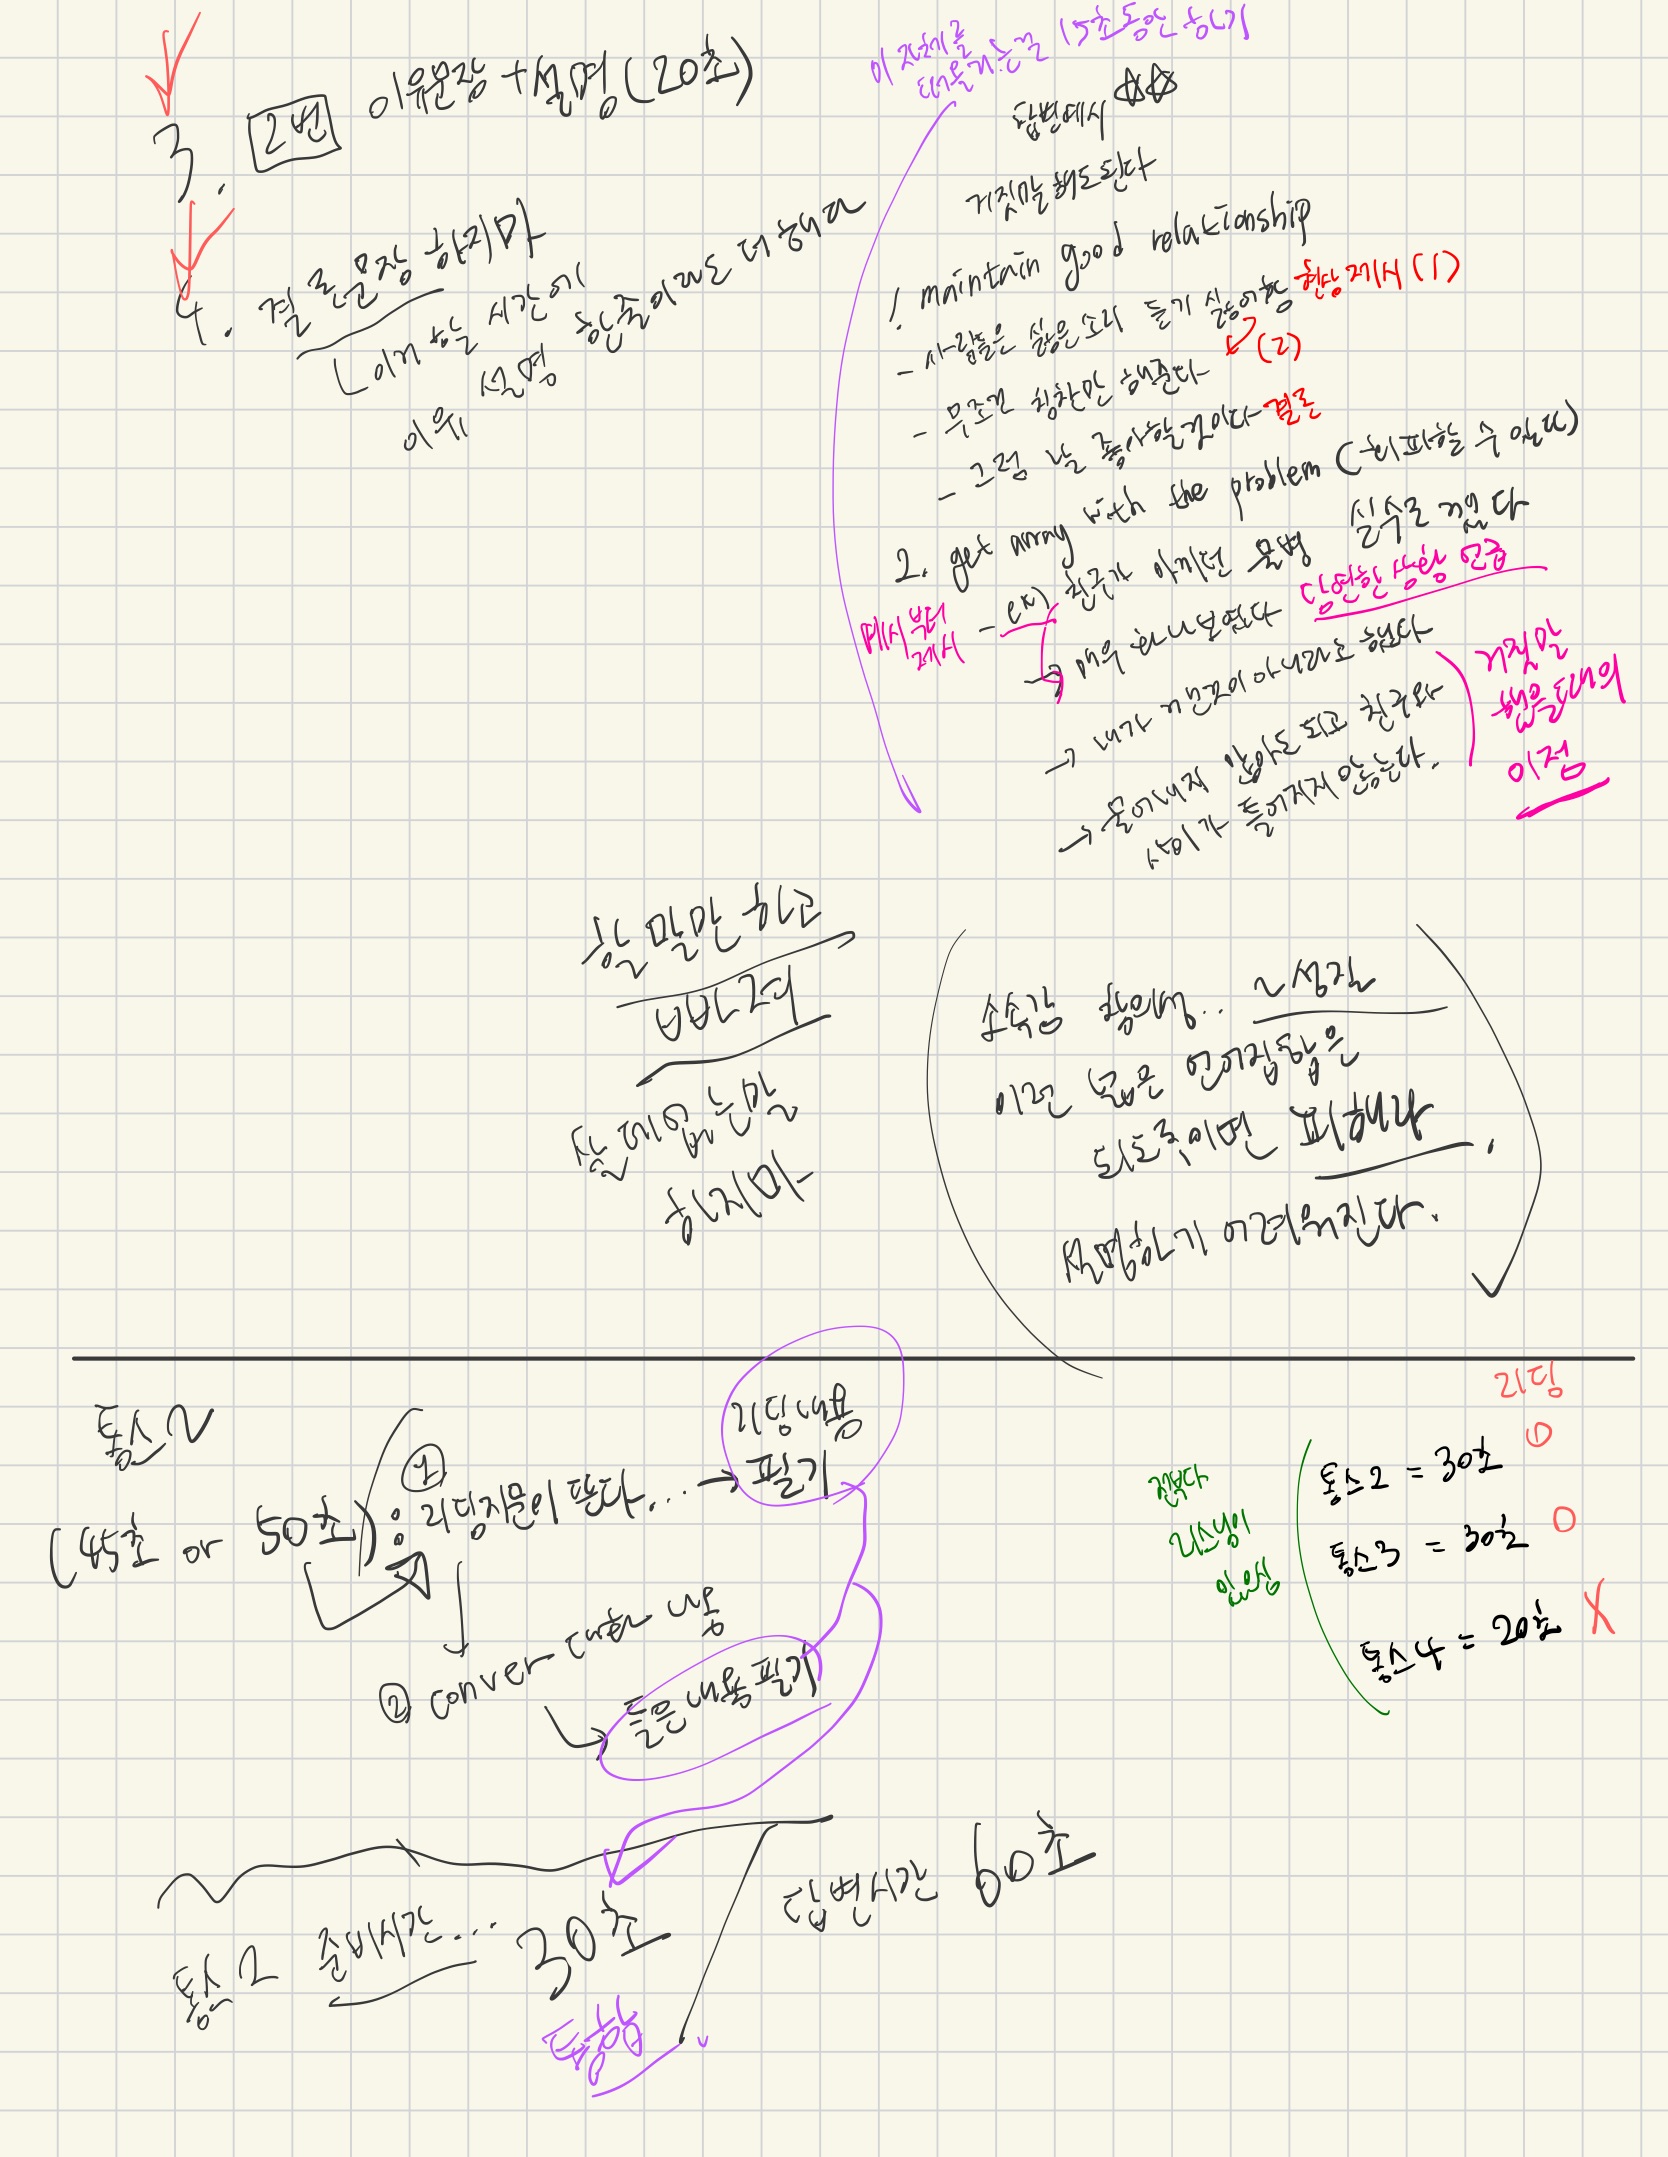 3. 2번 이유문장 + 설명 (20초)
4. 결론문장 하지마
이거 할 시간에
이유 설명 한줄이라도 더 해라
이 전체를
떠올리는걸 15초동안 하기
답변예시 ☆☆
거짓말해도된다
1. maintain good relationship
- 사람들은 싫은소리 듣기 싫어함 현상제시 (1)
- 무조건 칭찬만 해준다 (2)
- 그럼 날 좋아할것이다 결론
2. get array with the problem (회피할 수 있다)
- ex) 친구가 아끼던 물병 실수로 깼다
예시부터
제시
→ 매우 화나보였다 당면한 상황 언급
→ 내가 깨먼것이 아니라고 했다
→ 물어내지 않아도 되고 친구와
사이가 틀어지지 않는다.
거짓말
했을때의
이점
할 말만 하고
빠져
쓸데없는말
하지마
소속감 함양.. ~성장
이런 붙은 언어집합은
되도록이면 피해라.
설명하기 어려워진다.
통스2
(45초 or 50초) : ① 리딩지문이 뜬다... → 리딩내용 필기
② conver 대화 내용
→ 들은 내용 필기
통스2 준비시간... 30초
통합
답변시간 60초
리딩
전부다
리스닝이
있음
통스2 = 30초 O
통스3 = 30초 O
통스4 = 20초 X